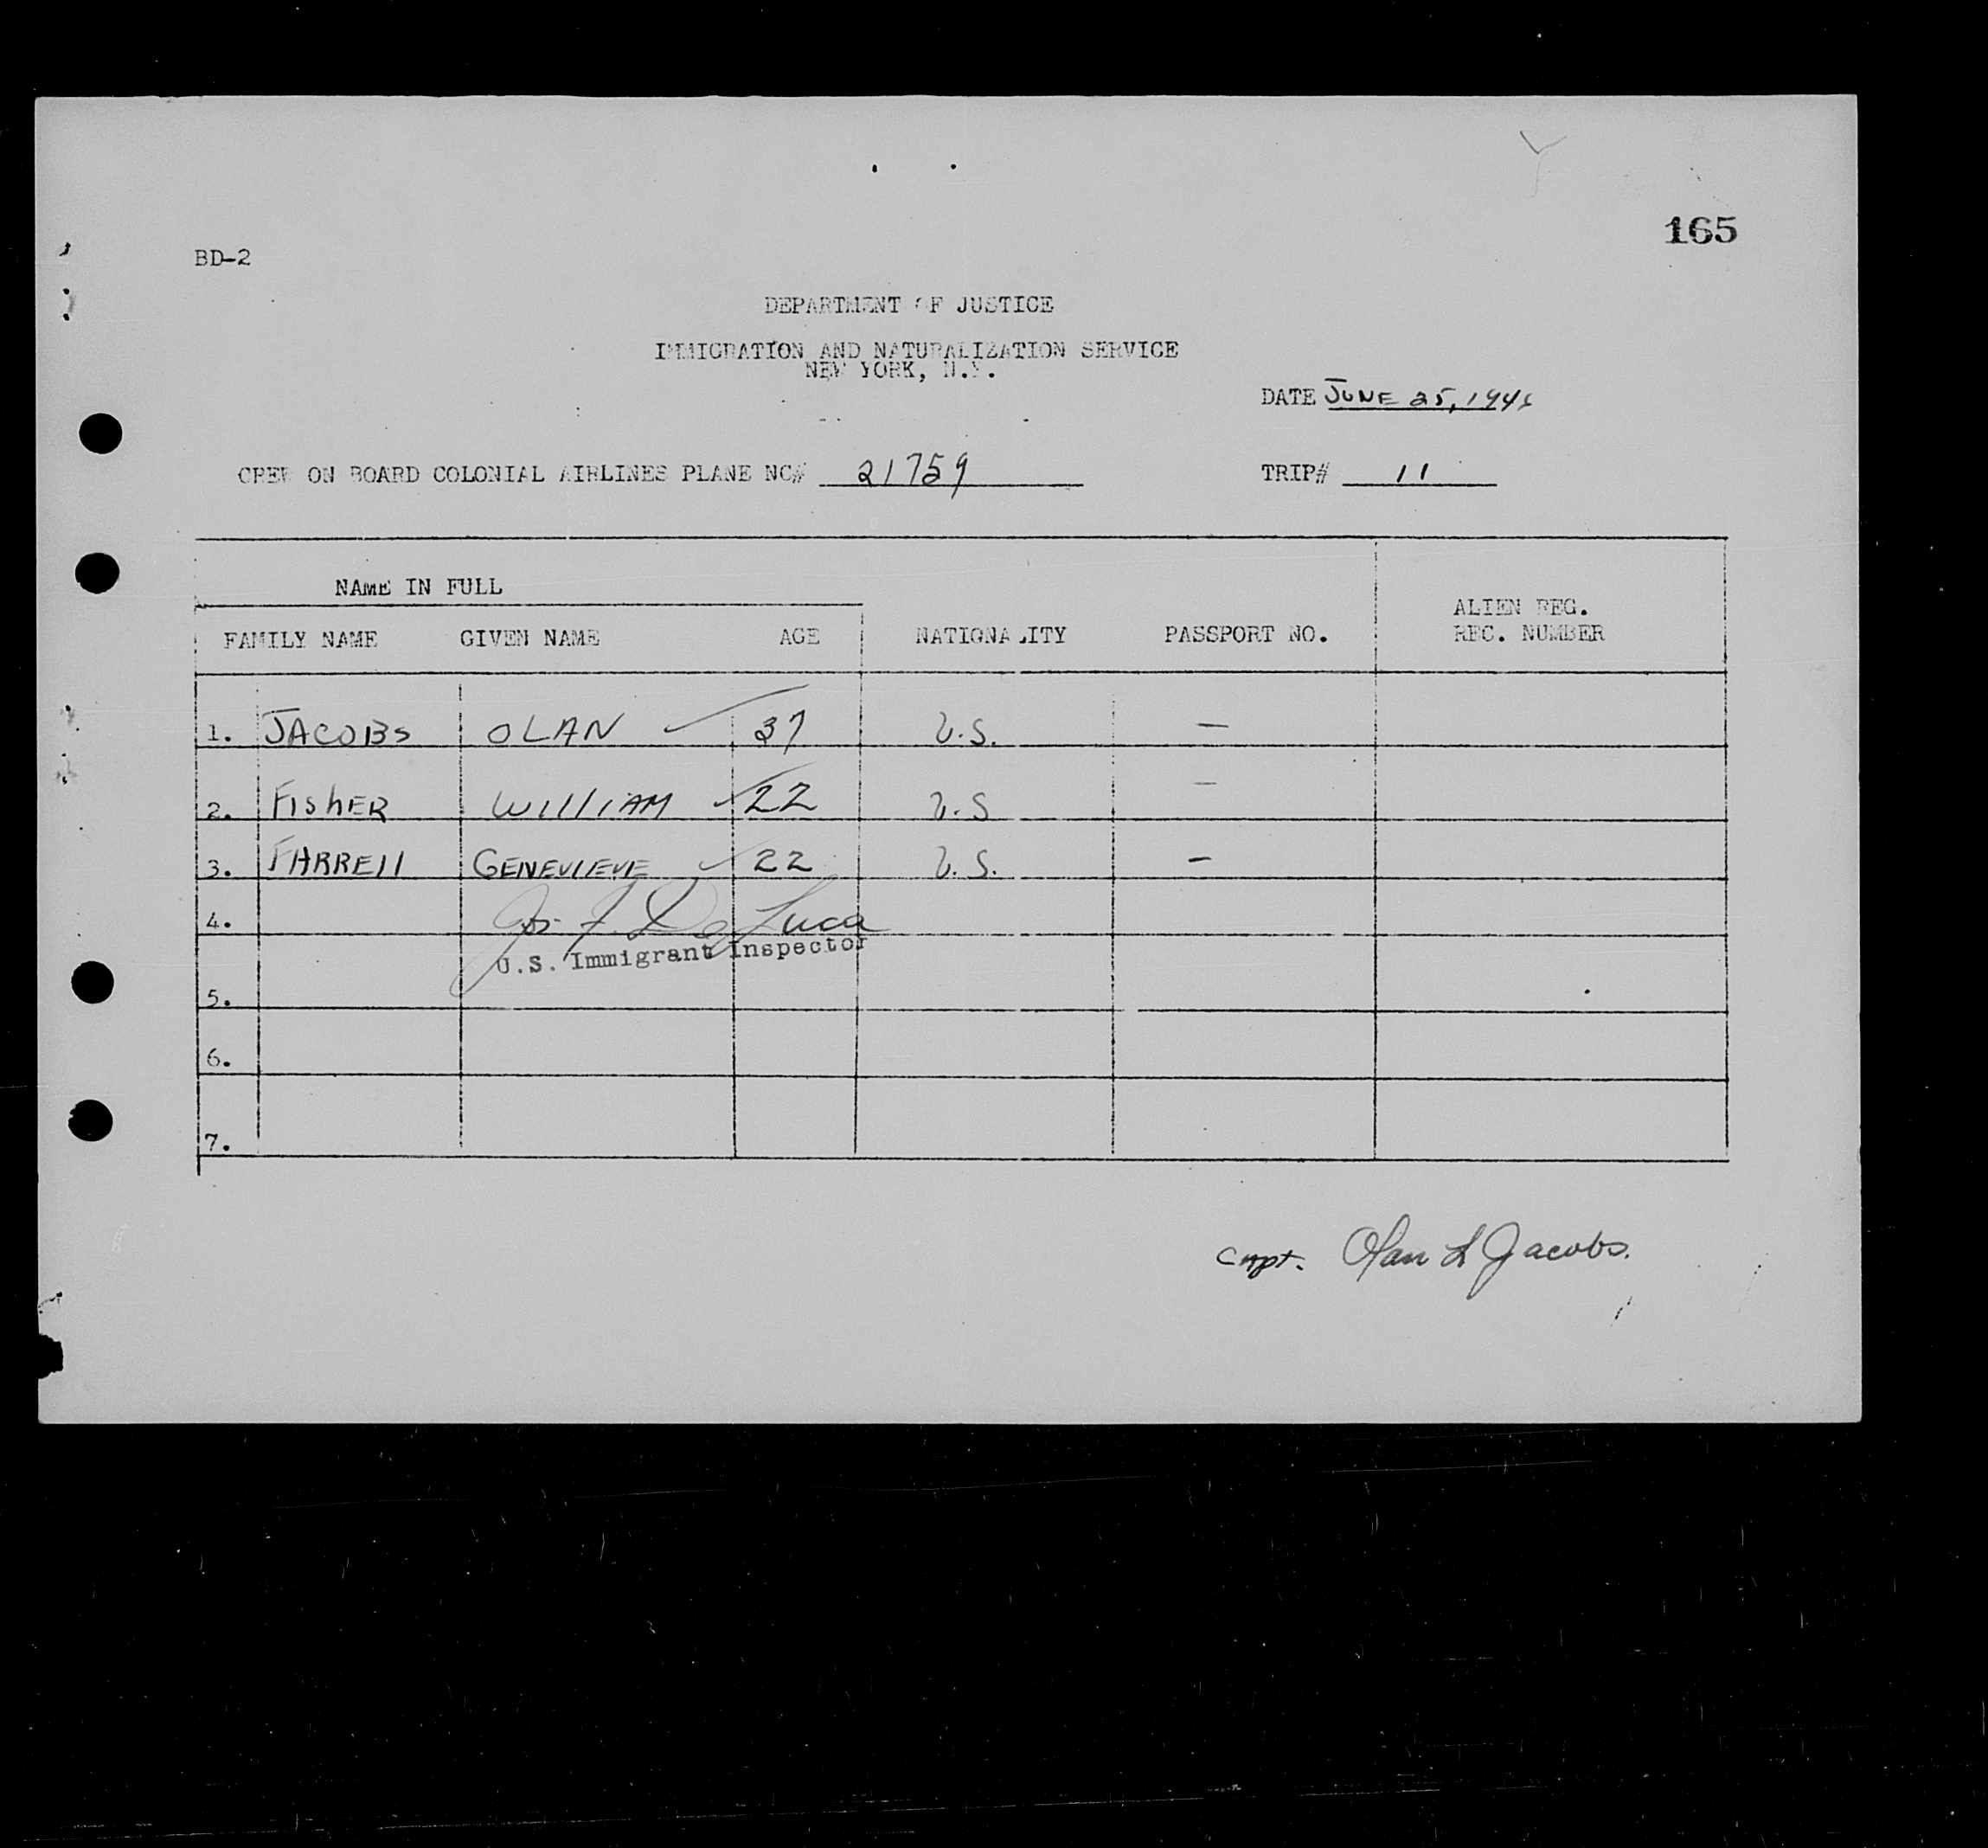 165
BD-2
DEPARTMENT OF JUSTICE
IMMIGRATION AND NATURALIZATION SERVICE
NEW YORK, N.Y.
DATE JUNE 25,
CREW ON BOARD COLONIAL AIRLINES PLANE NC# 21759 TRIP# 11
NAME IN FULL
FAMILY NAME GIVEN NAME AGE NATIONALITY PASSPORT NO. ALIEN REG. REC. NUMBER
1. JACOBS OLAN 37 U.S. —
2. FISHER WILLIAM 22 U.S —
3. FARRELL GENEVIEVE 22 U.S. —
4. Jos. F. De Luca
U.S. Immigrant Inspector
5.
6.
7.
Capt. Olan L Jacobs.